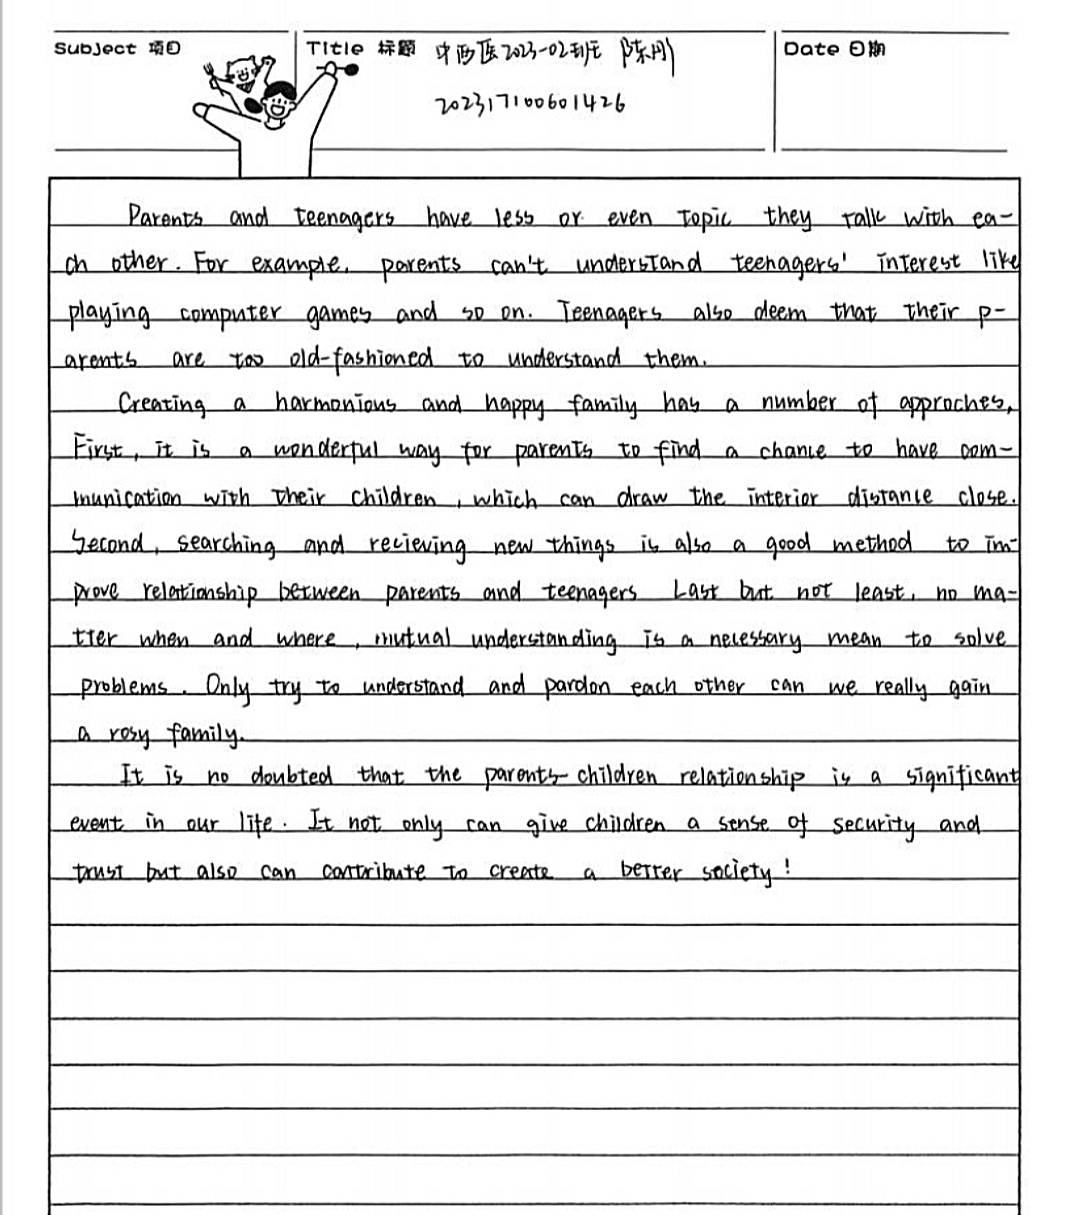 Subject 项目
Title 标题 中西医2023-02班 陈刚
Date 日期
202317100601426
Parents and teenagers have less or even topic they talk with ea-
ch other. For example, parents can't understand teenagers' interest like
playing computer games and so on. Teenagers also deem that their p-
arents are too old-fashioned to understand them.
Creating a harmonious and happy family has a number of approches,
First, it is a wonderful way for parents to find a chance to have com-
munication with their children, which can draw the interior distance close.
Second, searching and recieving new things is also a good method to im-
prove relationship between parents and teenagers Last but not least, no ma-
tter when and where, mutual understanding is a necessary mean to solve
problems. Only try to understand and pardon each other can we really gain
a rosy family.
It is no doubted that the parents-children relationship is a significant
event in our life. It not only can give children a sense of security and
trust but also can contribute to create a better society!